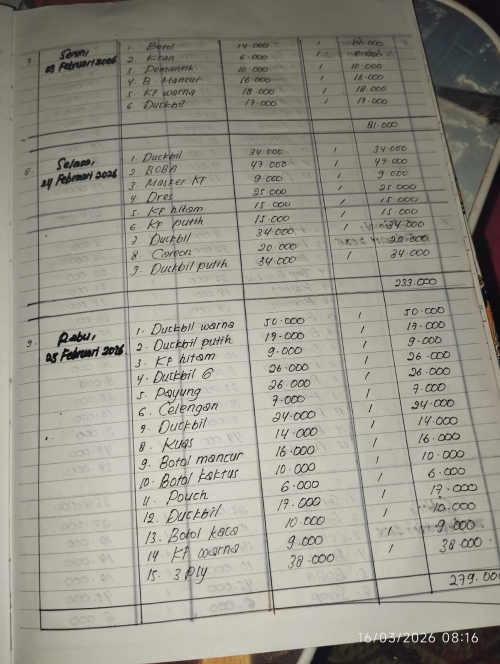 7. Senin, 1. Botol 14.000 1 14.000
23 Februari 2026 2. Kran 6.000 1
3. 10.000 1 10.000
4. B Mancur 16.000 1 16.000
5. KF warna 18.000 1 18.000
6. Duckbil 17.000 1 17.000
81.000
8 Selasa, 1. Duckbil 34.000 1 34.000
24 Februari 2026 2 BOBA 47.000 1 47.000
3. Masker KF 9.000 1 9.000
4. Dres 25.000 1 25.000
5. KF hitam 15.000 1 15.000
6. KF putih 15.000 1 15.000
7 Duckbil 34.000 1 34.000
8 20.000 1 20.000
9. Duckbil putih 34.000 1 34.000
233.000
9. Rabu, 1. Duckbil warna 50.000 1 50.000
25 Februari 2026 2. Duckbil putih 17.000 1 17.000
3. KF hitam 9.000 1 9.000
4. Duckbil G 26.000 1 26.000
5 Payung 26.000 1 26.000
6. Celengan 7.000 1 7.000
7. Duckbil 24.000 1 24.000
8 Kuas 14.000 1 14.000
9. Botol mancur 16.000 1 16.000
10. Botol kaktus 10.000 1 10.000
11. Pouch 6.000 1 6.000
12. Duckbil 17.000 1 17.000
13. Botol kaca 10.000 1 10.000
14 KF warna 9.000 1 9.000
15. 3 Ply 38.000 1 38.000
279.000
16/03/2026 08:16